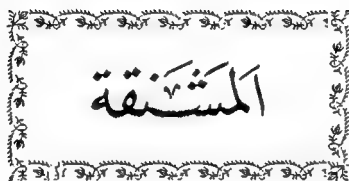 اَلمَشْنَقة